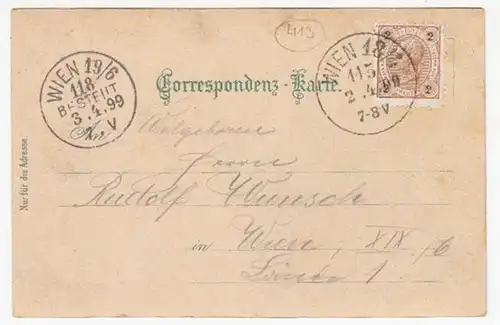 413
WIEN 19/6
118
BESTELLT
3.4.99
V
Correspondenz-Karte.
WIEN 18
115
2.4.99
7-8V
2 2
2 2
Wolgeboren
Herrn
Rudolf Wunsch
in Wien, XIX/6
1.
Nur für die Adresse.